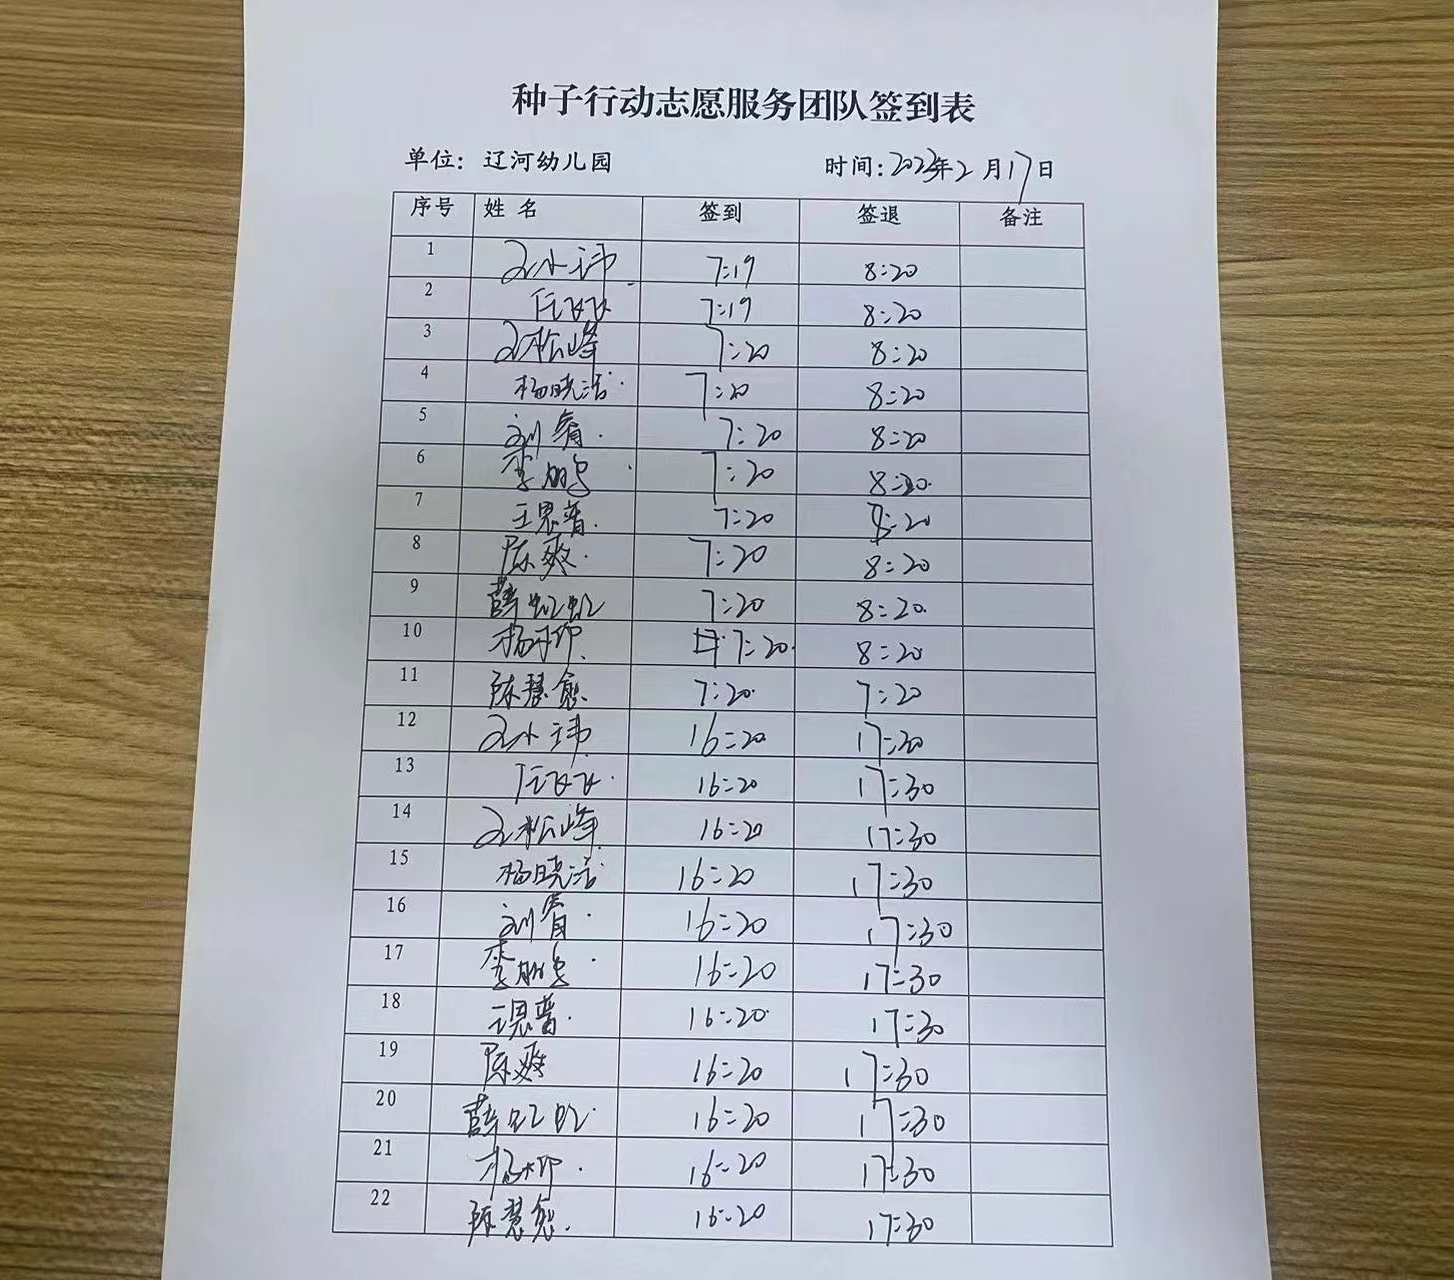 种子行动志愿服务团队签到表
单位: 辽河幼儿园 时间:2022年2月17日
序号 姓名 签到 签退 备注
1 孟小玮 7:19 8:20
2 7:19 8:20
3 孟松峰 7:20 8:20
4 杨晓洁 7:20 8:20
5 刘睿 7:20 8:20
6 李鹏 7:20 8:20
7 王思普 7:20 8:20
8 陈爽 7:20 8:20
9 薛虹虹 7:20 8:20
10 杨柳 7:20 8:20
11 陈慧愈 7:20 7:20
12 孟小玮 16:20 17:30
13 16:20 17:30
14 孟松峰 16:20 17:30
15 杨晓洁 16:20 17:30
16 刘睿 16:20 17:30
17 李鹏 16:20 17:30
18 王思普 16:20 17:30
19 陈爽 16:20 17:30
20 薛虹虹 16:20 17:30
21 杨柳 16:20 17:30
22 陈慧愈 16:20 17:30